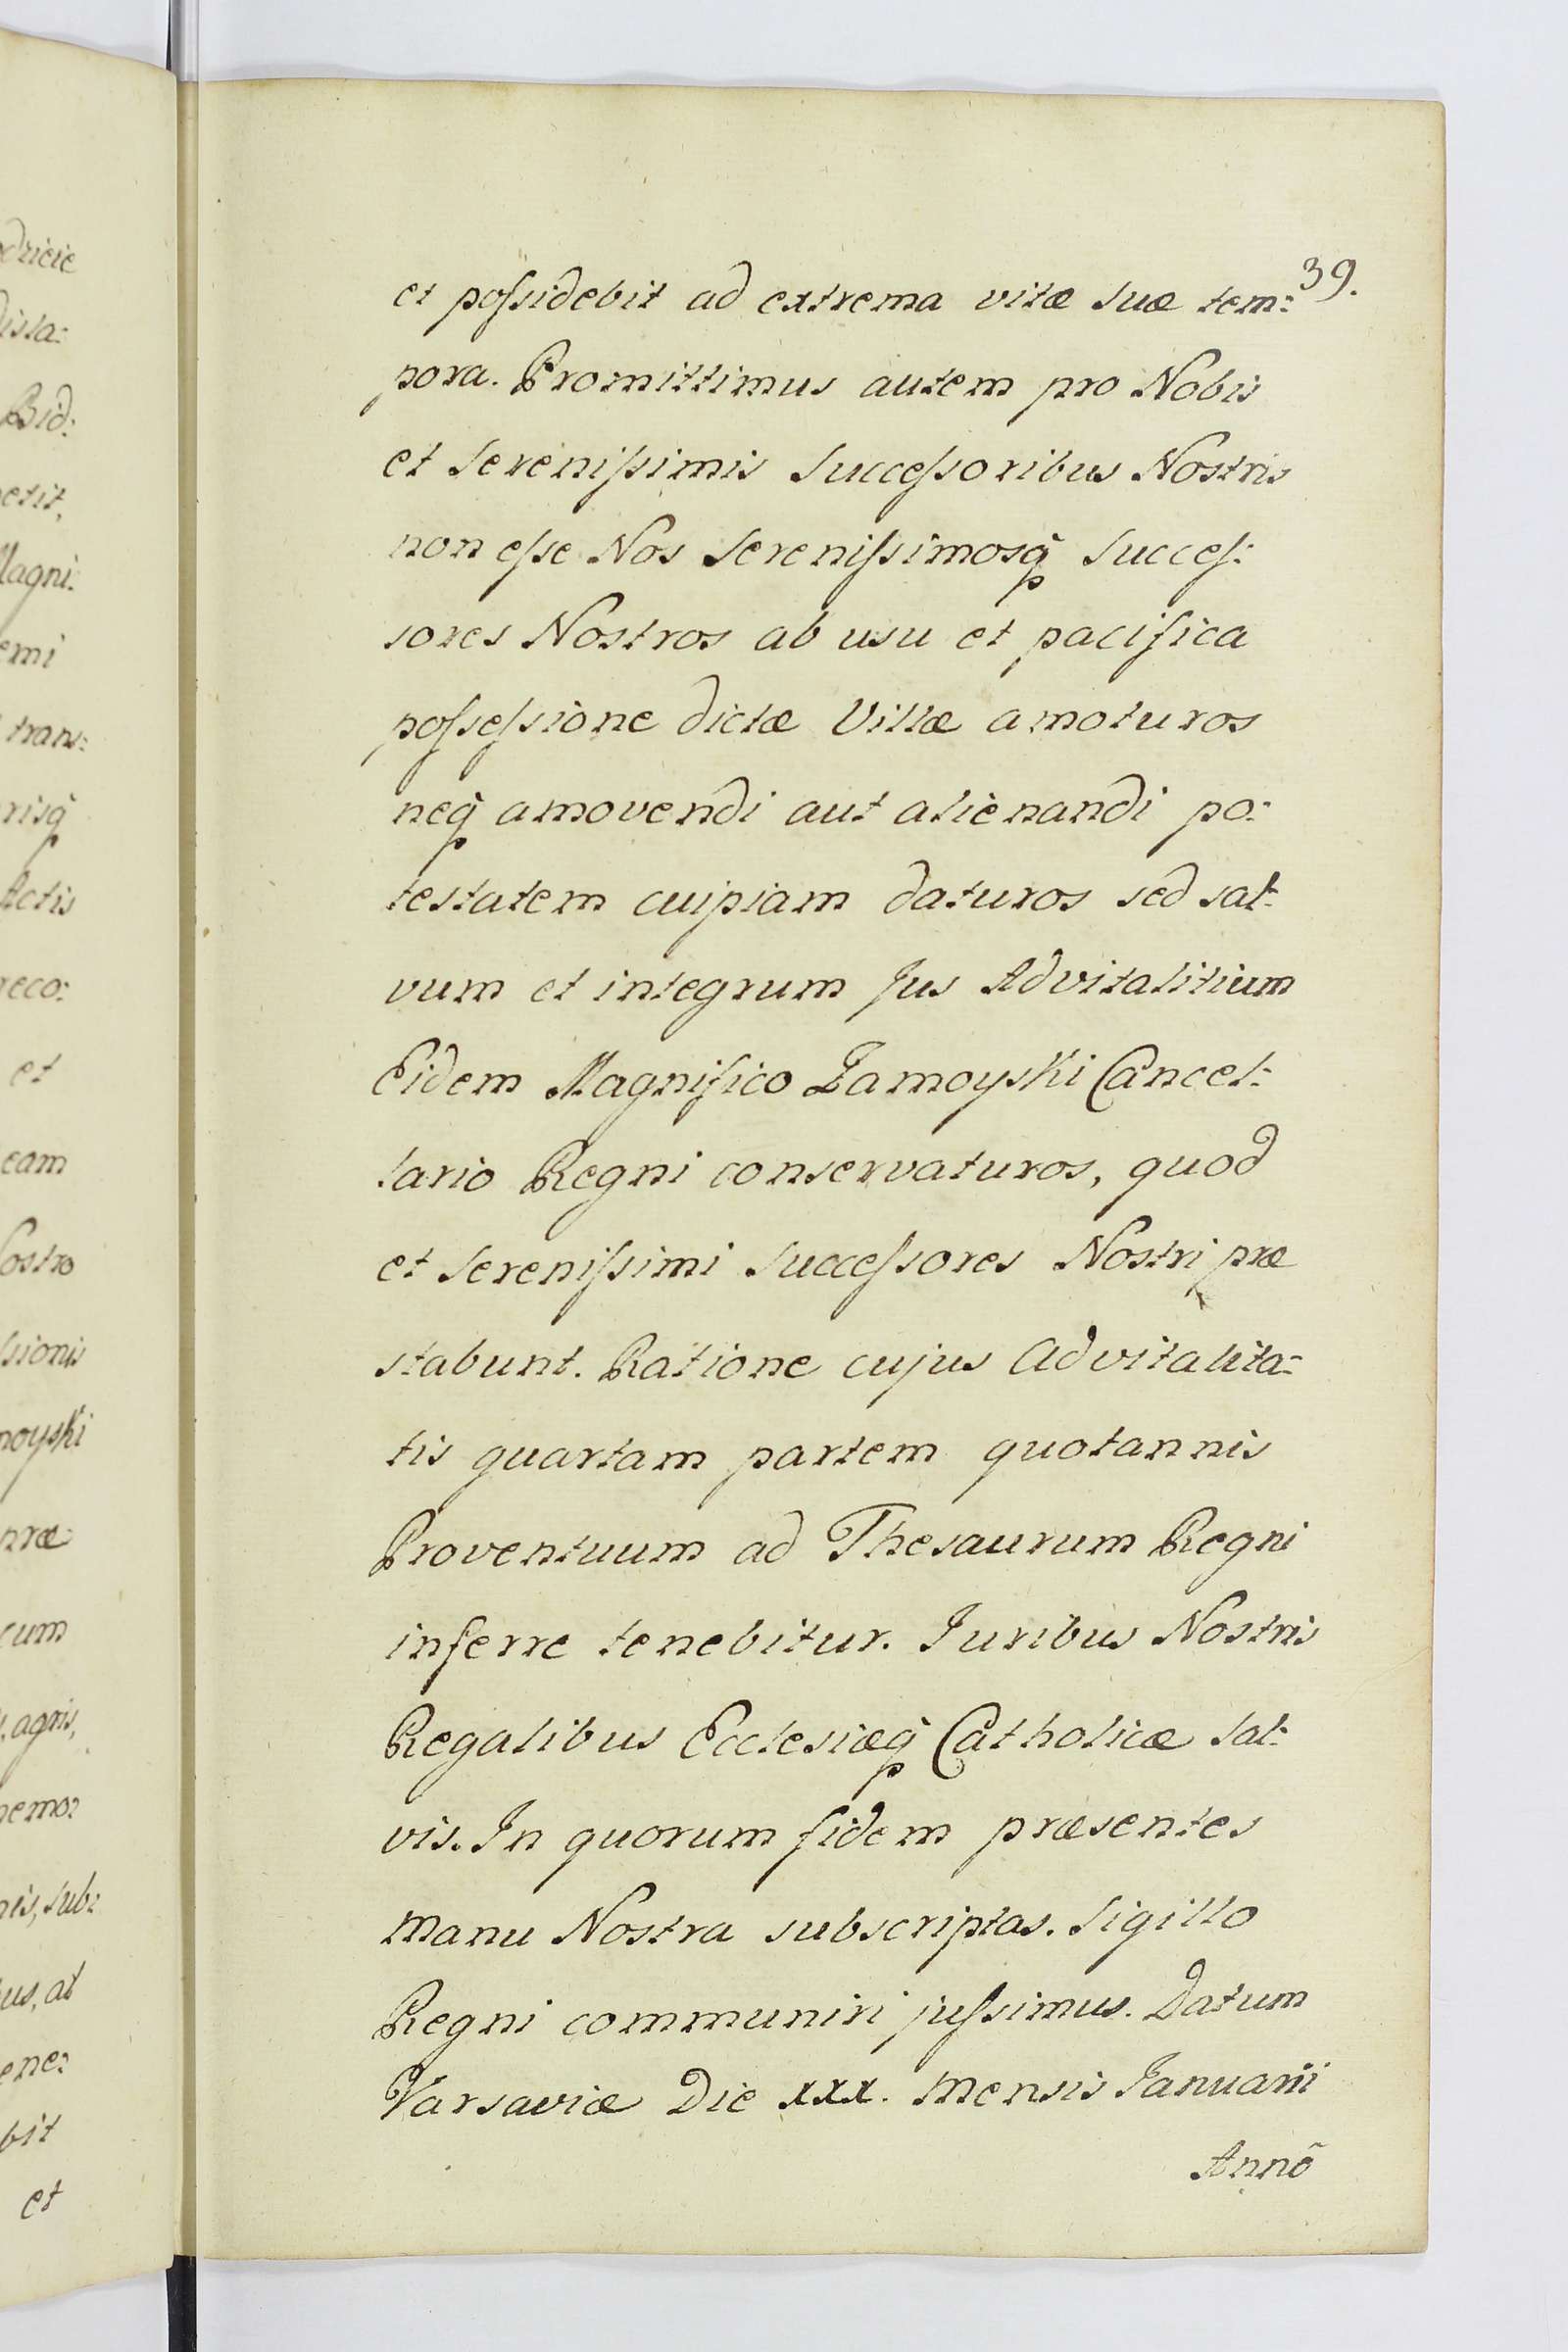 39.
et poſsidebit ad extrema vitæ suæ tem:
pora. Promittimus autem pro Nobis
et Sereniſsimis Succeſsoribus Nostris
non eſse Nos Sereniſsimosq̃ Succeſ:
sores Nostros ab usu et pacifica
poſseſsione dictæ Villæ amoturos
neq̃ amovendi aut alienandi po:
testatem cuipiam daturos sed sal:
vum et integrum Jus Advitalitium
Eidem Magnifico Zamoyski Cancel:
lario Regni conservaturos, quod
et Sereniſsimi Succeſsores Nostri præ
stabunt. Ratione cujus Advitalita:
tis quartam partem quotannis
Proventuum ad Thesaurum Regni
inferre tenebitur. Juribus Nostris
Regalibus Ecclesiæq̃ Catholicæ Sal:
vis. In quorum fidem præsentes
Manu Nostra subscriptas. Sigillo
Regni communiri juſsimus. Datum
Varsaviæ Die xxx. Mensis Januarii
Annõ
dricie
dista:
Bid:
etit,
Magni:
emi
trans:
risq̃
Actis
reco:
et
eam
Nostro
ſsionis
moyski
præ:
cum
agris,
nemo:
nis, sub:
us, al
ene:
bit
et